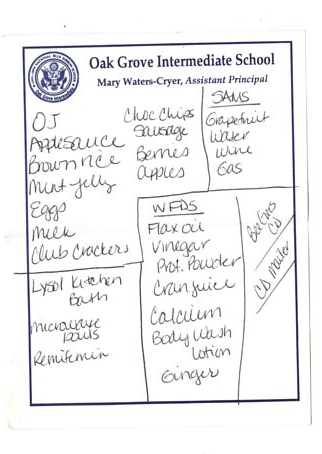 Oak Grove Intermediate School
Mary Waters-Cryer, Assistant Principal
OJ
Applesauce
Brown rice
Mint Jelly
Eggs
Milk
Club Crackers
Choc Chips
Sausage
Berries
apples
SAMS
Grapefruit
Water
Wine
Gas
Lysol Kitchen
Bath
Microwave
bowls
Remifemin
WFDS
Flax oil
Vinegar
Prot. Powder
Cran juice
Calcium
Body Wash
lotion
Ginger
Bee Gees
CD
CD mailer